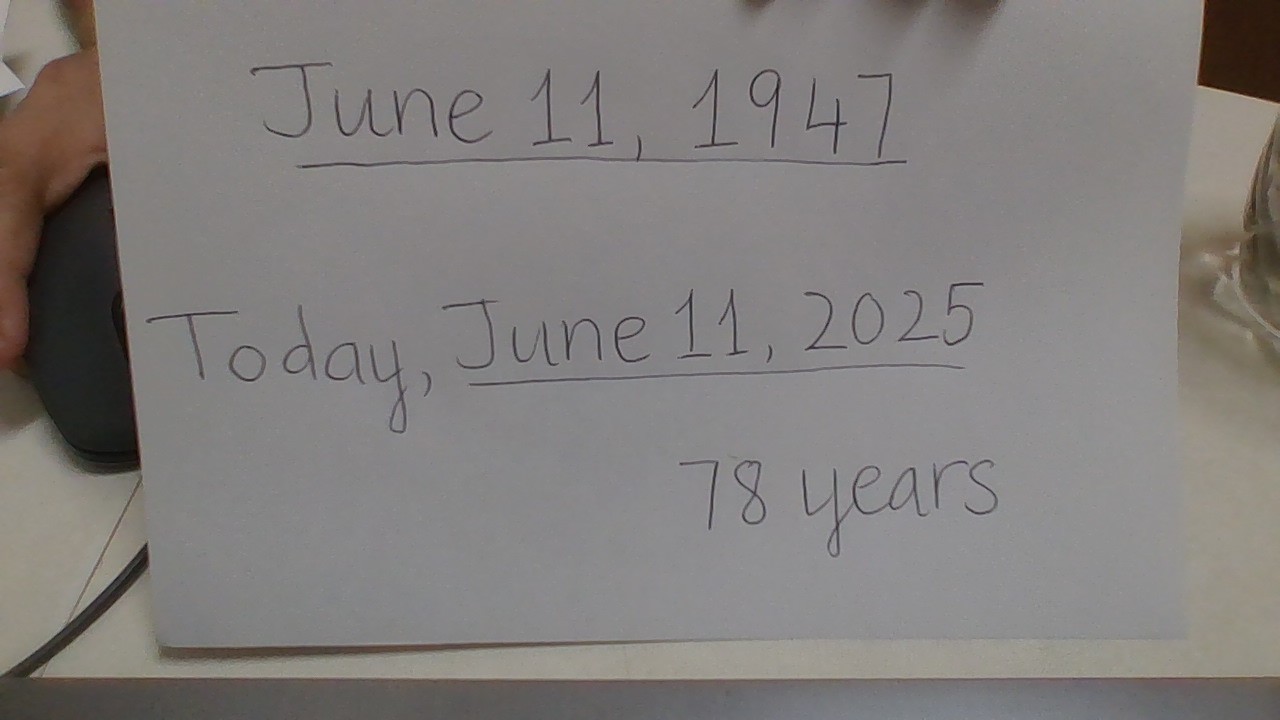 June 11, 1947
Today, June 11, 2025
78 years